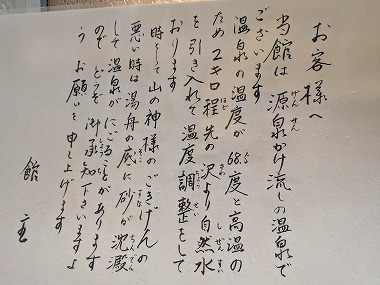 お客様へ
当館は源泉かけ流しの温泉で
ございます
温泉の温度が68.5度と高温の
ため2キロ程先の沢より自然水
を引き入れて温度調整をして
おります
時として山の神様のごきげんの
悪い時は湯舟の底に砂が沈澱
して温泉がにごることがあります
のでどうぞ御承知下さいますよ
うお願いを申し上げます
館主